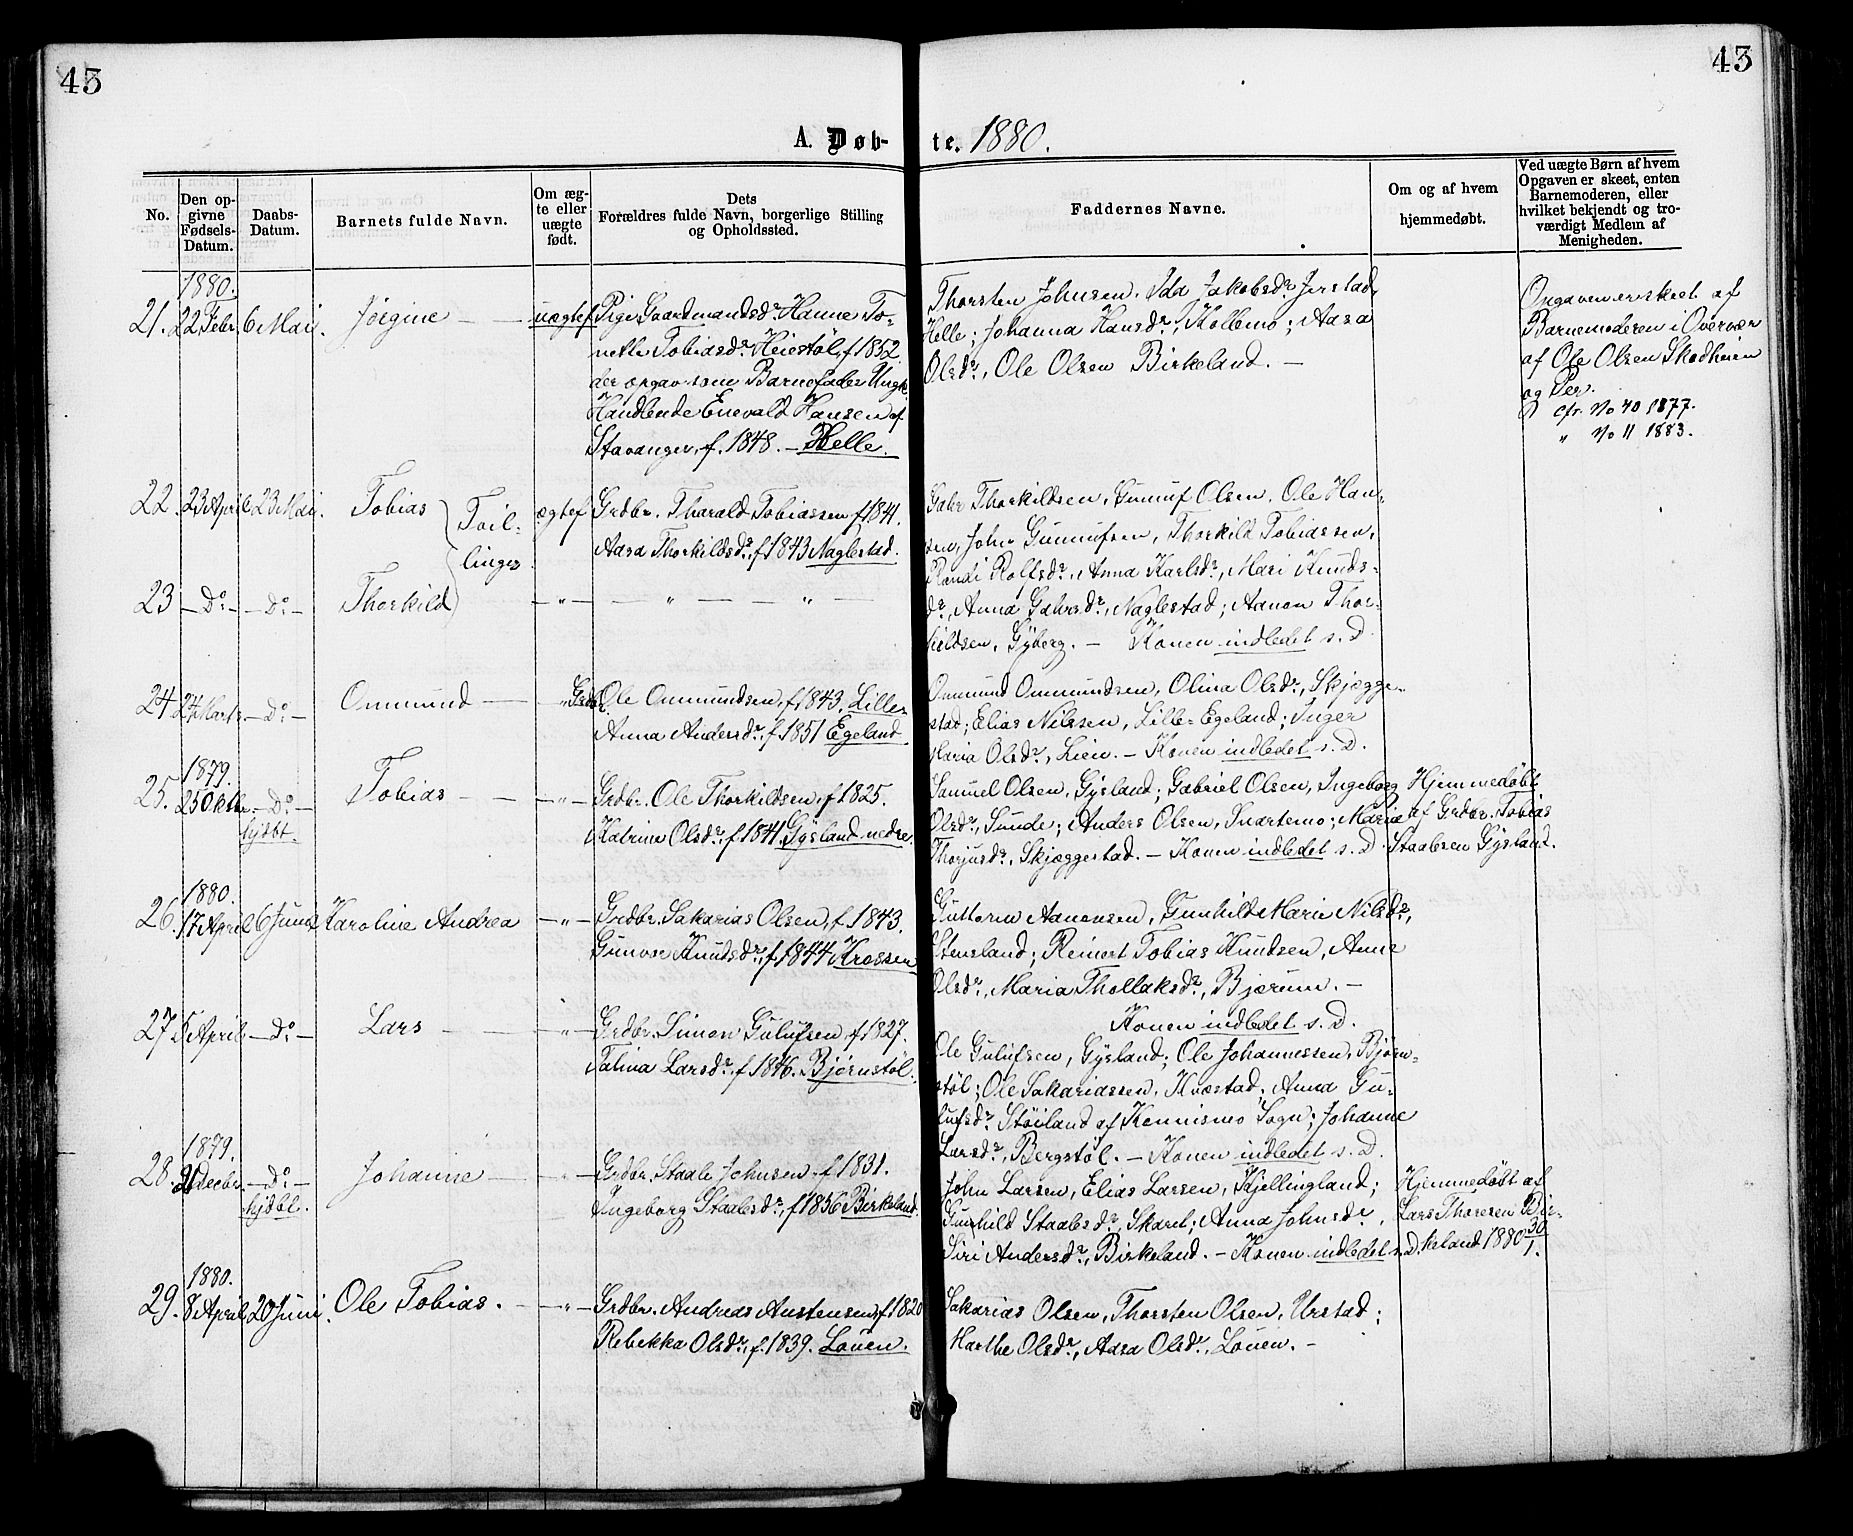 43
43
A. Døb-
te. 1880.
No.
Den op-
givne
Fødsels-
Datum.
Daabs-
Datum.
Barnets fulde Navn.
Om æg-
te eller
uægte
født.
Dets
Forældres fulde Navn, borgerlige Stilling
og Opholdssted.
Faddernes Navne.
Om og af hvem
hjemmedøbt.
Ved uægte Børn af hvem
Opgaven er skeet, enten
Barnemoderen, eller
hvilket bekjendt og tro-
værdigt Medlem af
Menigheden.
1880.
21. 22 Febr. 6 Mai. Jørgine — uægtef.
Pige Gaardmandsd. Hanne To-
nette Tobiasd. Heiestøl, f. 1852.
der opgav som Barnefader Ungk.
Handlende Enevald Hansen af
Stavanger, f. 1848. — Helle.
Thorsten Johnsen, Ida Jakobsd. Jerstad,
Helle; Johanna Hansd., Kollemo; Aasa
Olsd., Ole Olsen Birkeland. —
Opgaven er skeet af
Barnemoderen i Overvær
af Ole Olsen Skodheien
og Per.
cfr. No 40 1877.
" No 11 1883.
22. 23 April 23 Mai. Tobias
Tvil-
linger.
ægtef.
Grdbr. Tharald Tobiassen f. 1841.
Aasa Thorkildsd., f. 1843 Naglestad.
Gabr. Thorkildsen, Gunuf Olsen, Ole Han-
sen, John Gunnufsen, Thorkild Tobiassen,
Randi Rolfsd., Anna Karlsd., Mari Knuds-
d., Anna Gabrsd., Naglestad; Aanon Thor-
kildsen, Gyberg. — Konen indledet s. D.
23 — Do — — Do — Thorkild — " — — " — — " —
24 24 Marts — Do — Ommund — "
Grdbr. Ole Ommundsen, f. 1843, Lille-
Anna Andersd., f. 1851 Egeland.
Ommund Ommundsen, Olina Olsd., Skjægge-
stad; Elias Nilssen, Lille Egeland; Inger
Maria Olsd., Lien. — Konen indledet s. D.
1879.
25. 25 Oktbr. — Do — Tobias — — " —
hjdbt.
Grdbr. Ole Thorkildsen, f. 1825.
Katrine Olsd., f. 1841. Gysland nedre.
Samuel Olsen, Gysland; Gabriel Olsen, Ingeborg
Olsd., Sunde; Anders Olsen, Snartemo; Maria
Thorjusd., Skjæggestad. — Konen indledet s. D.
Hjemmedøbt
af Grdbr. Tobias
Staalesen Gysland.
1880.
26. 17 April 6 Juni Karoline Andrea — " —
Grdbr. Sakarias Olsen, f. 1843.
Gunvor Knudsd., f. 1844 Krossen
Guttorm Aanensen, Gunhild Marie Nilsd.,
Stensland; Reinert Tobias Knudsen, Anne
Olsd., Maria Thollaksd., Bjærum. —
Konen indledet s. D.
27. 5 April — Do — Lars — — " —
Grdbr. Simon Gulufsen f. 1827.
Talina Larsd., f. 1846. Bjørnstøl.
Ole Gulufsen, Gysland; Ole Johannessen, Bjørn-
støl; Ole Sakariassen, Kvæstad; Anna Gu-
lufsd. Støiland af Konnismo Sogn; Johanne
Larsd., Bergstøl. — Konen indledet s. D.
1879.
28. Decbr. — Do — Johanne — — " —
hjdbt.
Grdbr. Staale Johnsen, f. 1831.
Ingeborg Staalesd., f. 1856 Birkeland.
John Larsen, Elias Larsen, Kjellingland;
Gunhild Staalesd., Skaret; Anna Johnsd.,
Siri Andersd., Birkeland. — Konen indledet s. D.
Hjemmedøbt af
Lars Thoresen Bir-
keland 1880 30/1.
1880.
29. 8 April 20 Juni. Ole Tobias. — — " —
Grdbr. Andreas Austensen, f. 1820
Rebekka Olsd., f. 1839. Løuen.
Sakarias Olsen, Thorsten Olsen, Urstad;
Marthe Olsd., Aasa Olsd., Løuen. —